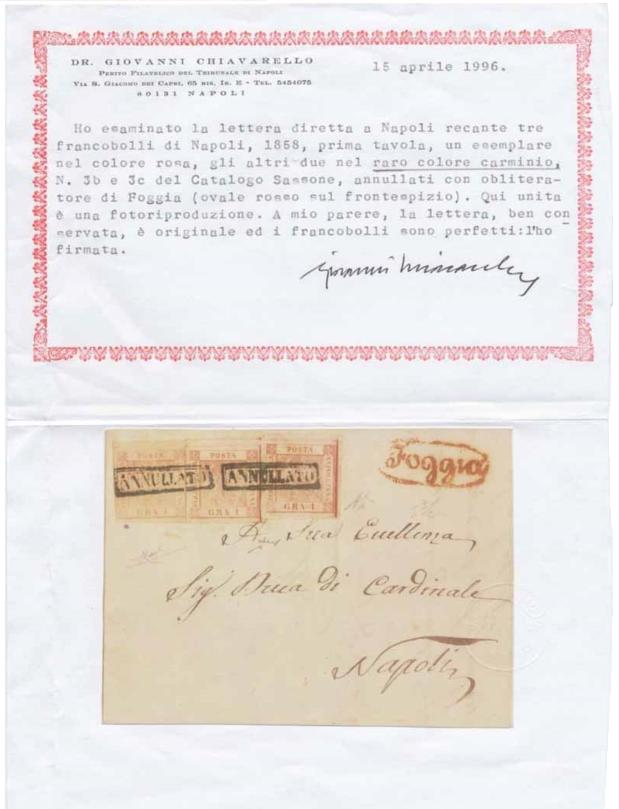 DR. GIOVANNI CHIAVARELLO
PERITO FILATELICO DEL TRIBUNALE DI NAPOLI
VIA S. GIACOMO DEI CAPRI, 65 BIS, IS. E - TEL. 5454075
80131 NAPOLI
15 aprile 1996.
Ho esaminato la lettera diretta a Napoli recante tre
francobolli di Napoli, 1858, prima tavola, un esemplare
nel colore rosa, gli altri due nel raro colore carminio,
N. 3b e 3c del Catalogo Sassone, annullati con oblitera-
tore di Foggia (ovale rosso sul frontespizio). Qui unita
è una fotoriproduzione. A mio parere, la lettera, ben con
servata, è originale ed i francobolli sono perfetti:l'ho
firmata.
POSTA POSTA POSTA
ANNULLATO ANNULLATO
GRA 1 GRA 1 GRA 1
Foggia
Sua Eccellenza
Sig. Duca di Cardinale
Napoli